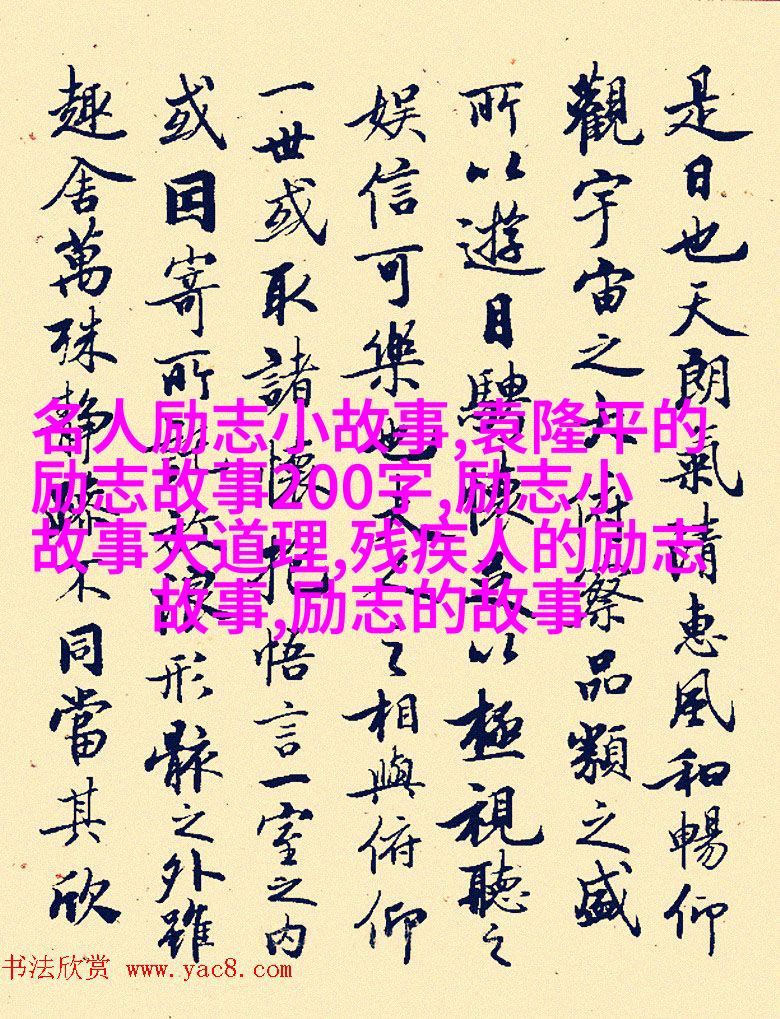 是日也天朗氣清惠風和暢仰
觀宇宙之大俯察品類之盛
所以遊目騁懷足以極視聽之
娱信可樂也夫人之相與俯仰
一世或取諸懷抱悟言一室之内
或因寄所託放浪形骸之外雖
趣舍萬殊静躁不同當其欣
名人励志小故事,袁隆平的
励志故事200字,励志小
故事大道理,残疾人的励志
故事,励志的故事
书法欣赏 www.yac8.com